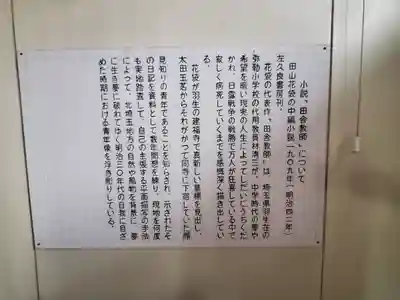 小説「田舎教師」について
田山花袋の中編小説（一九〇九年（明治四二年）
左久良書房刊。
花袋の代表作「田舎教師」は、埼玉県羽生在の
弥勒小学校の代用教員林清三が、中学時代の夢や
希望を暗い現実の人生によってしだいにうちくだ
かれ、日露戦争の戦勝で万人が狂喜している中で
寂しく病死していくまでを感慨深く描き出してい
る。
花袋が羽生の建福寺で真新しい墓標を見出し、
太田玉茗からそれがかつて同寺に下宿していた顔
見知りの青年であることを知らされ、示されたそ
の日記を資料として数年間想を練り、現地を何度
も実地踏査して、自己の主張する平面描写の手法
によって、北埼玉地方の自然や風物を背景に、夢
に生き夢に破れてゆく明治三〇年代の自我に目ざ
めた時期における青年像を浮き彫りしている。